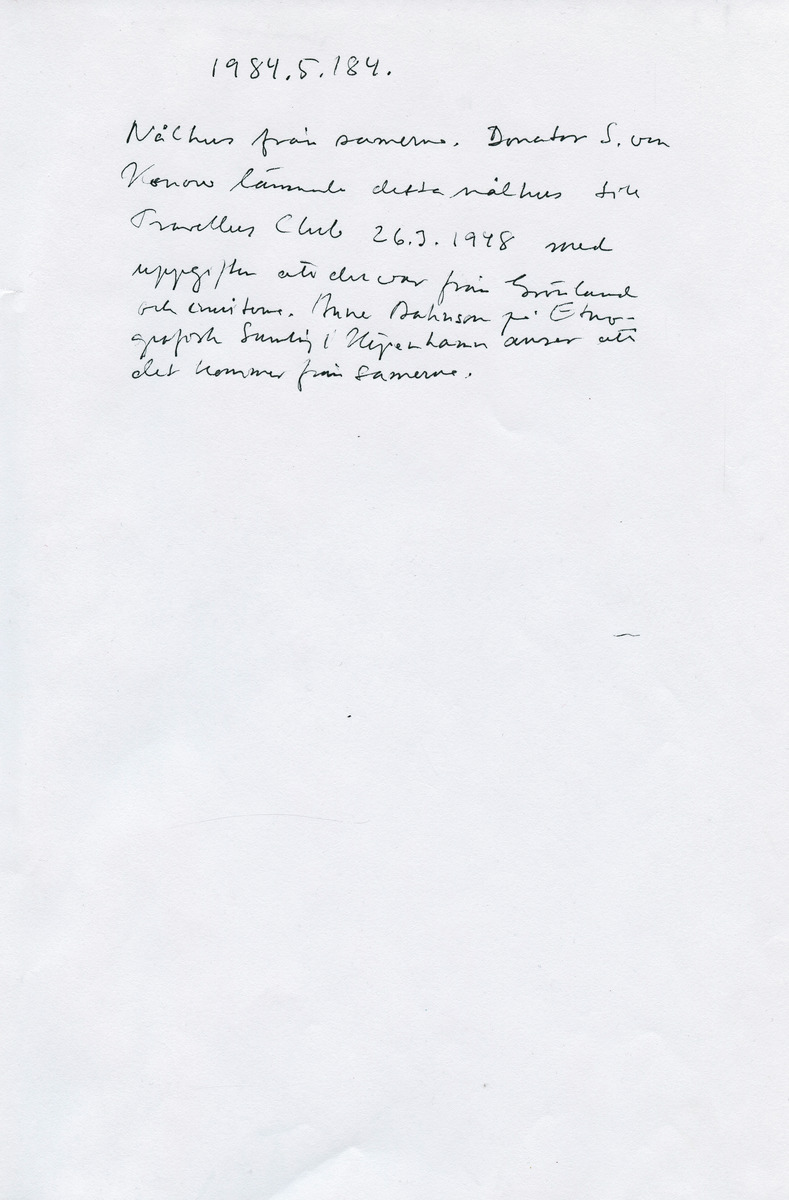 1984.5.184.
Nålhus från samerna. Donator S. von
Konow lämnade detta nålhus till
Travellers Club 26.3.1948 med
uppgiften att det var från Grönland
och inuiterna. Anne Bahnson på Etno-
grafisk Samling i Köpenhamn anser att
det kommer från samerna.